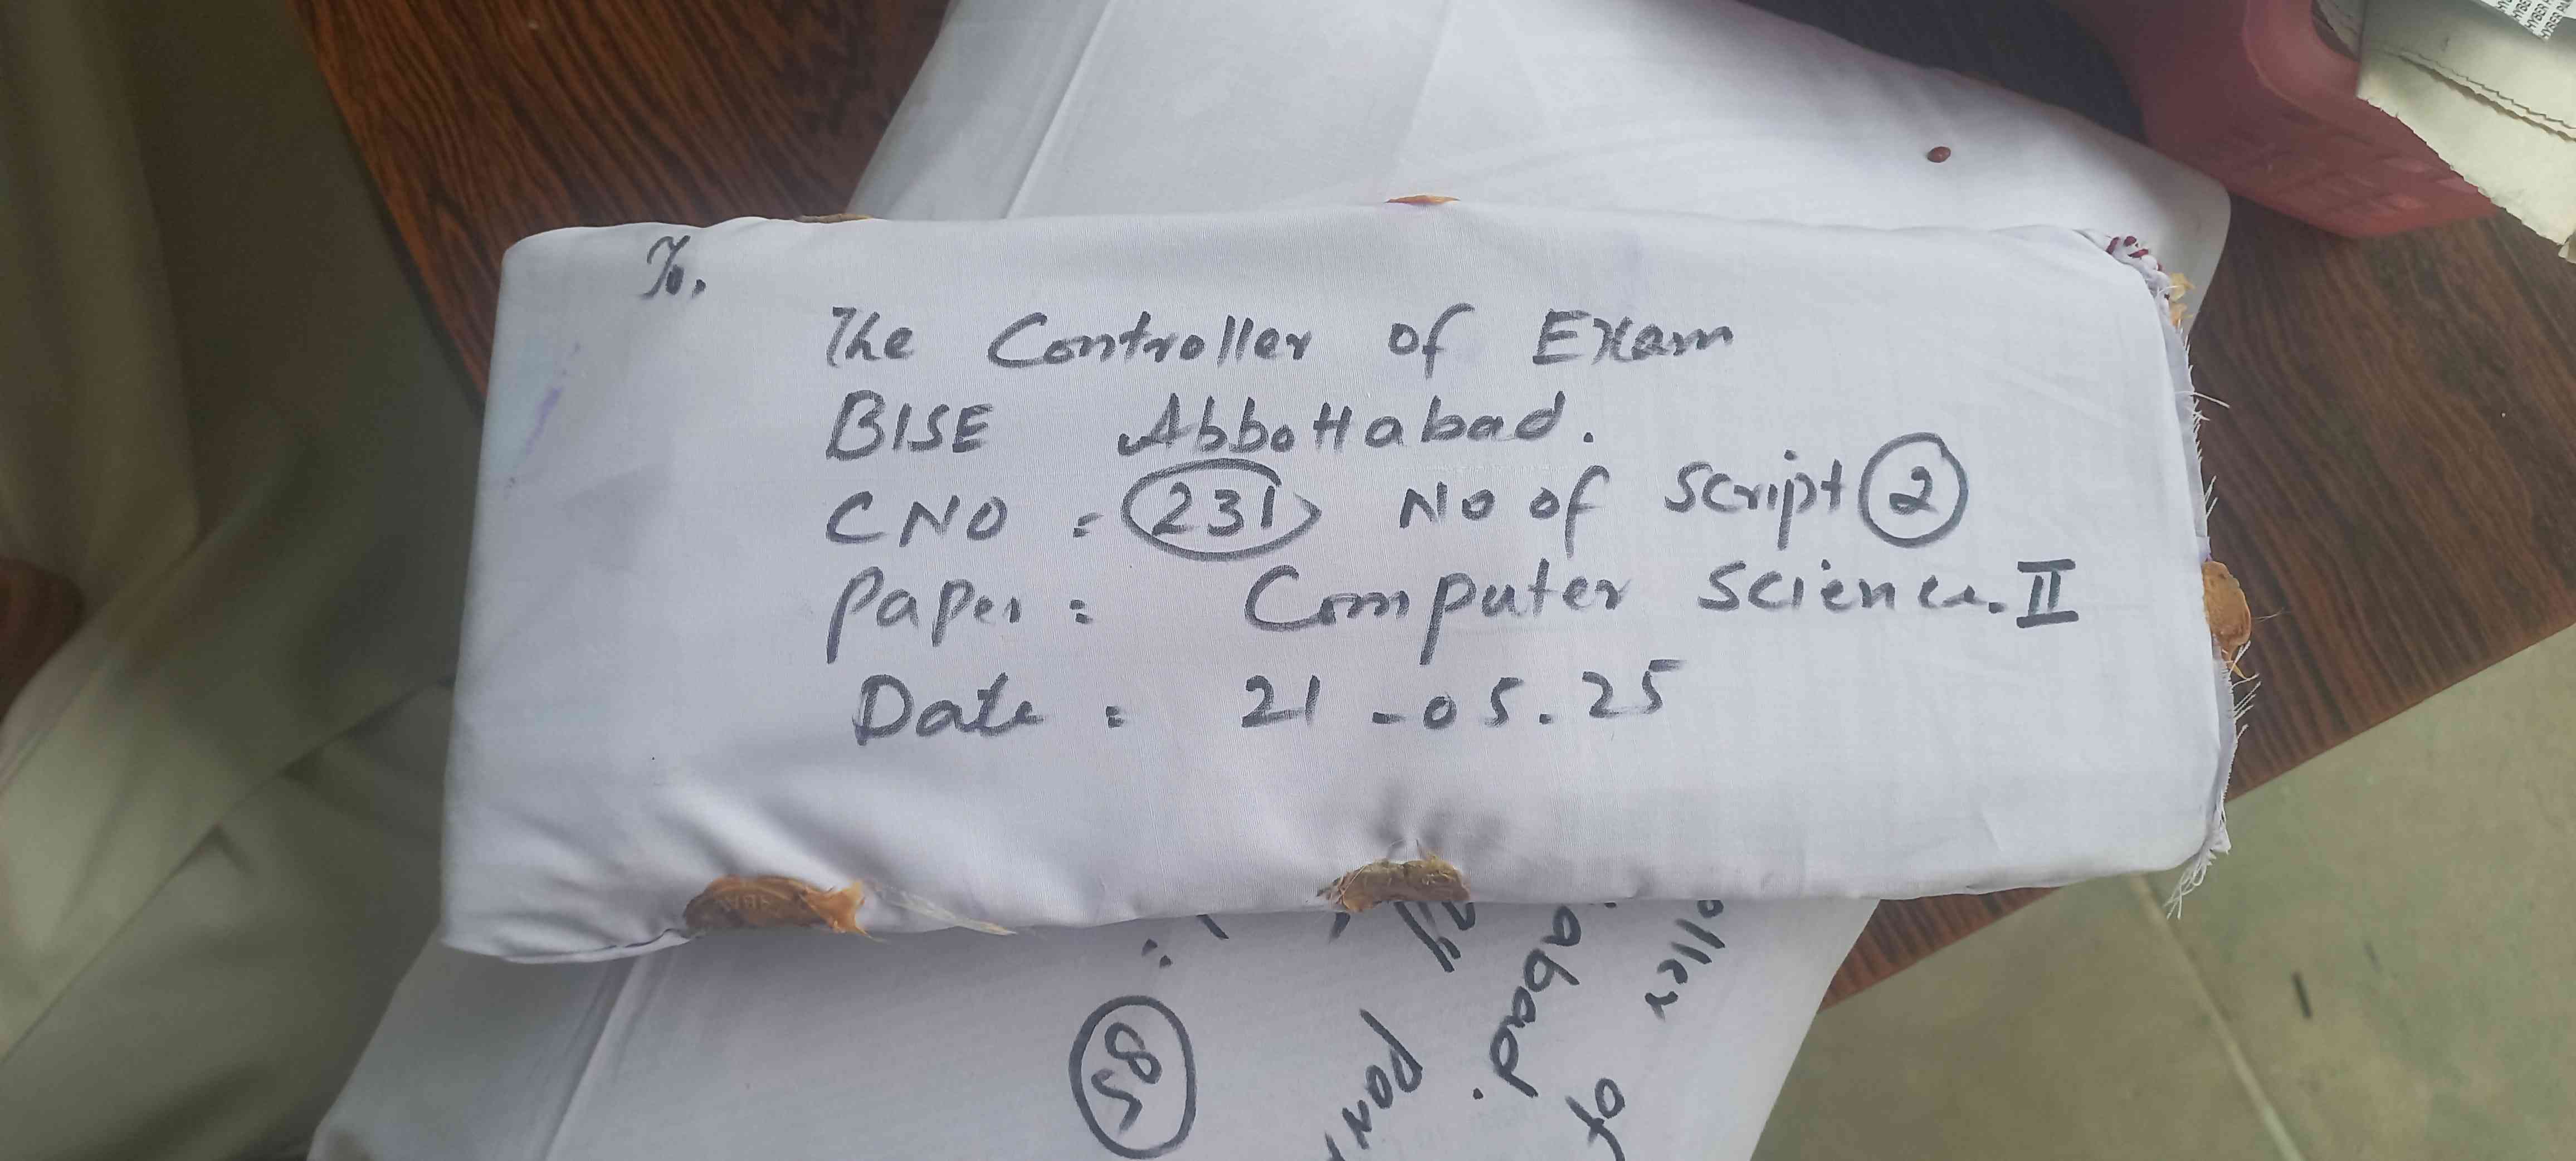 To,
The Controller of Exam
BISE Abbottabad.
CNO : 231 No of Script 2
Paper : Computer Science. II
Date : 21-05.25
oller of
abad.
Par
: 85